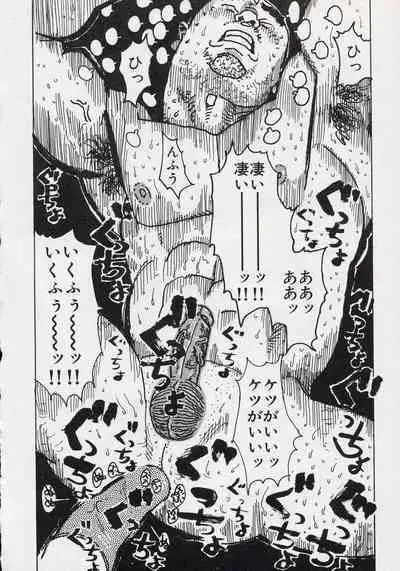 ひっ
ひっ
んふう
凄い――――ッ!!
凄い――――ッ!!
ああッ
ああッ
ぐっちょ
ぐっちょ
ぐっちょ
ぐっちょ
ぐっちょ
いくふう〜〜ッ!!
いくふう〜〜ッ!!
ぐっちょ
ぐっちょ
ぐっちょ
ケツがいいッ
ケツがいいッ
ぐっちょ
ぐっちょ
ぐっちょ
ぐっちょ